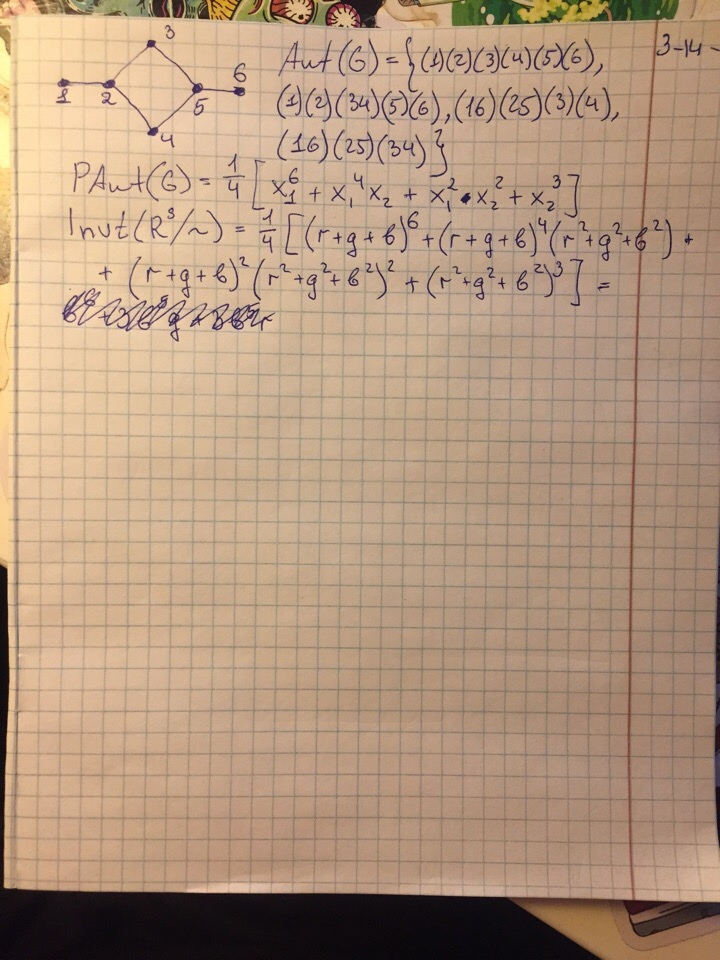 3
1 2 5 6
4
Aut(G) = {(1)(2)(3)(4)(5)(6),
3-14-
(1)(2)(34)(5)(6), (16)(25)(3)(4),
(16)(25)(34)}
PAut(G) = 1/4 [x₁⁶ + x₁⁴x₂ + x₁² · x₂² + x₂³]
Invt(R³/~) = 1/4 [(r+g+b)⁶ + (r+g+b)⁴(r²+g²+b²) +
+ (r+g+b)²(r²+g²+b²)² + (r²+g²+b²)³] =